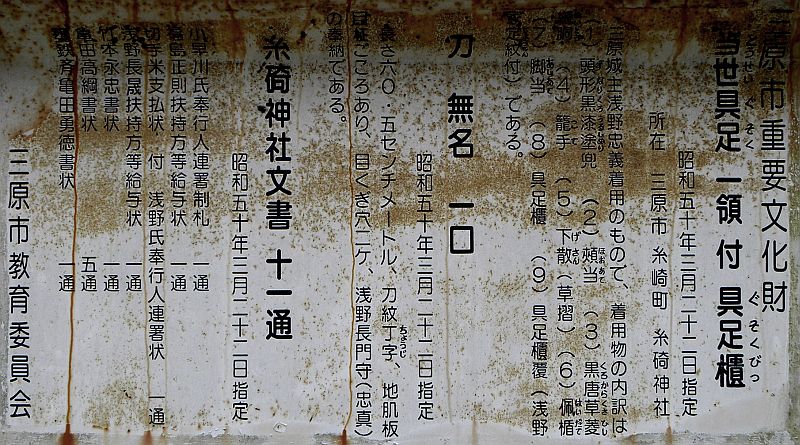 三原市重要文化財
当世具足 一領 付 具足櫃
昭和五十年三月二十二日指定
所在 三原市 糸崎町 糸碕神社
三原城主浅野忠義着用のもので、着用物の内訳は
(1)頭形黒漆塗兜 (2)頬当 (3)黒唐草菱
(4)籠手 (5)下散(草摺) (6)佩楯
(7)脚当 (8)具足櫃 (9)具足櫃覆(浅野
家定紋付)である。
刀 無名 一口
昭和五十年三月二十二日指定
長さ六〇・五センチメートル、刀紋丁字、地肌板
目柾ごころあり、目くぎ穴二ケ、浅野長門守(忠真)
の奉納である。
糸碕神社文書 十一通
昭和五十年三月二十二日指定
小早川氏奉行人連署制札 一通
福島正則扶持方等給与状 一通
切手米支払状 付 浅野氏奉行人連署状 一通
浅野長晟扶持方等給与状 一通
竹本永忠書状 一通
亀田高綱書状 五通
鉄斉亀田勇徳書状 一通
三原市教育委員会